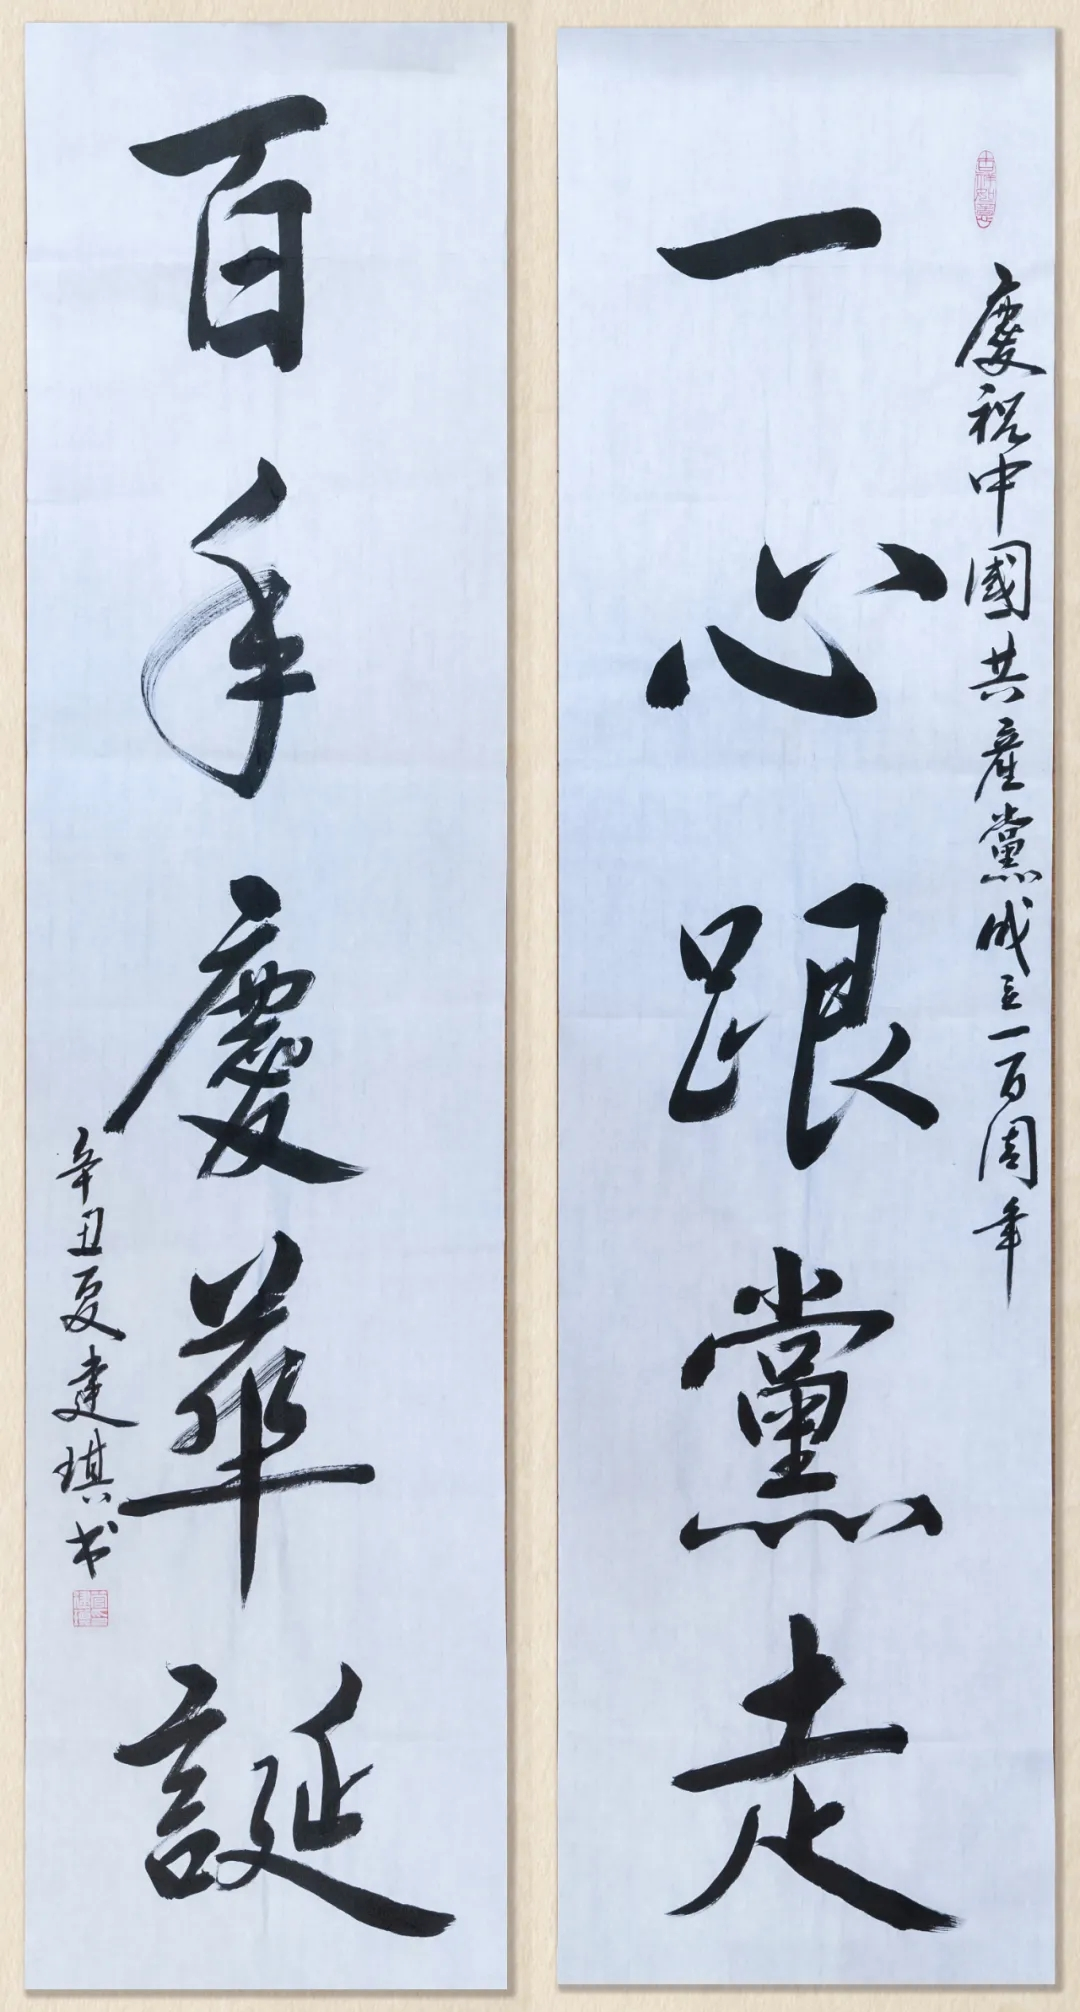 慶祝中國共産黨成立一百周年
一心跟黨走
百年慶華誕
辛丑夏建琪书
吉祥如意